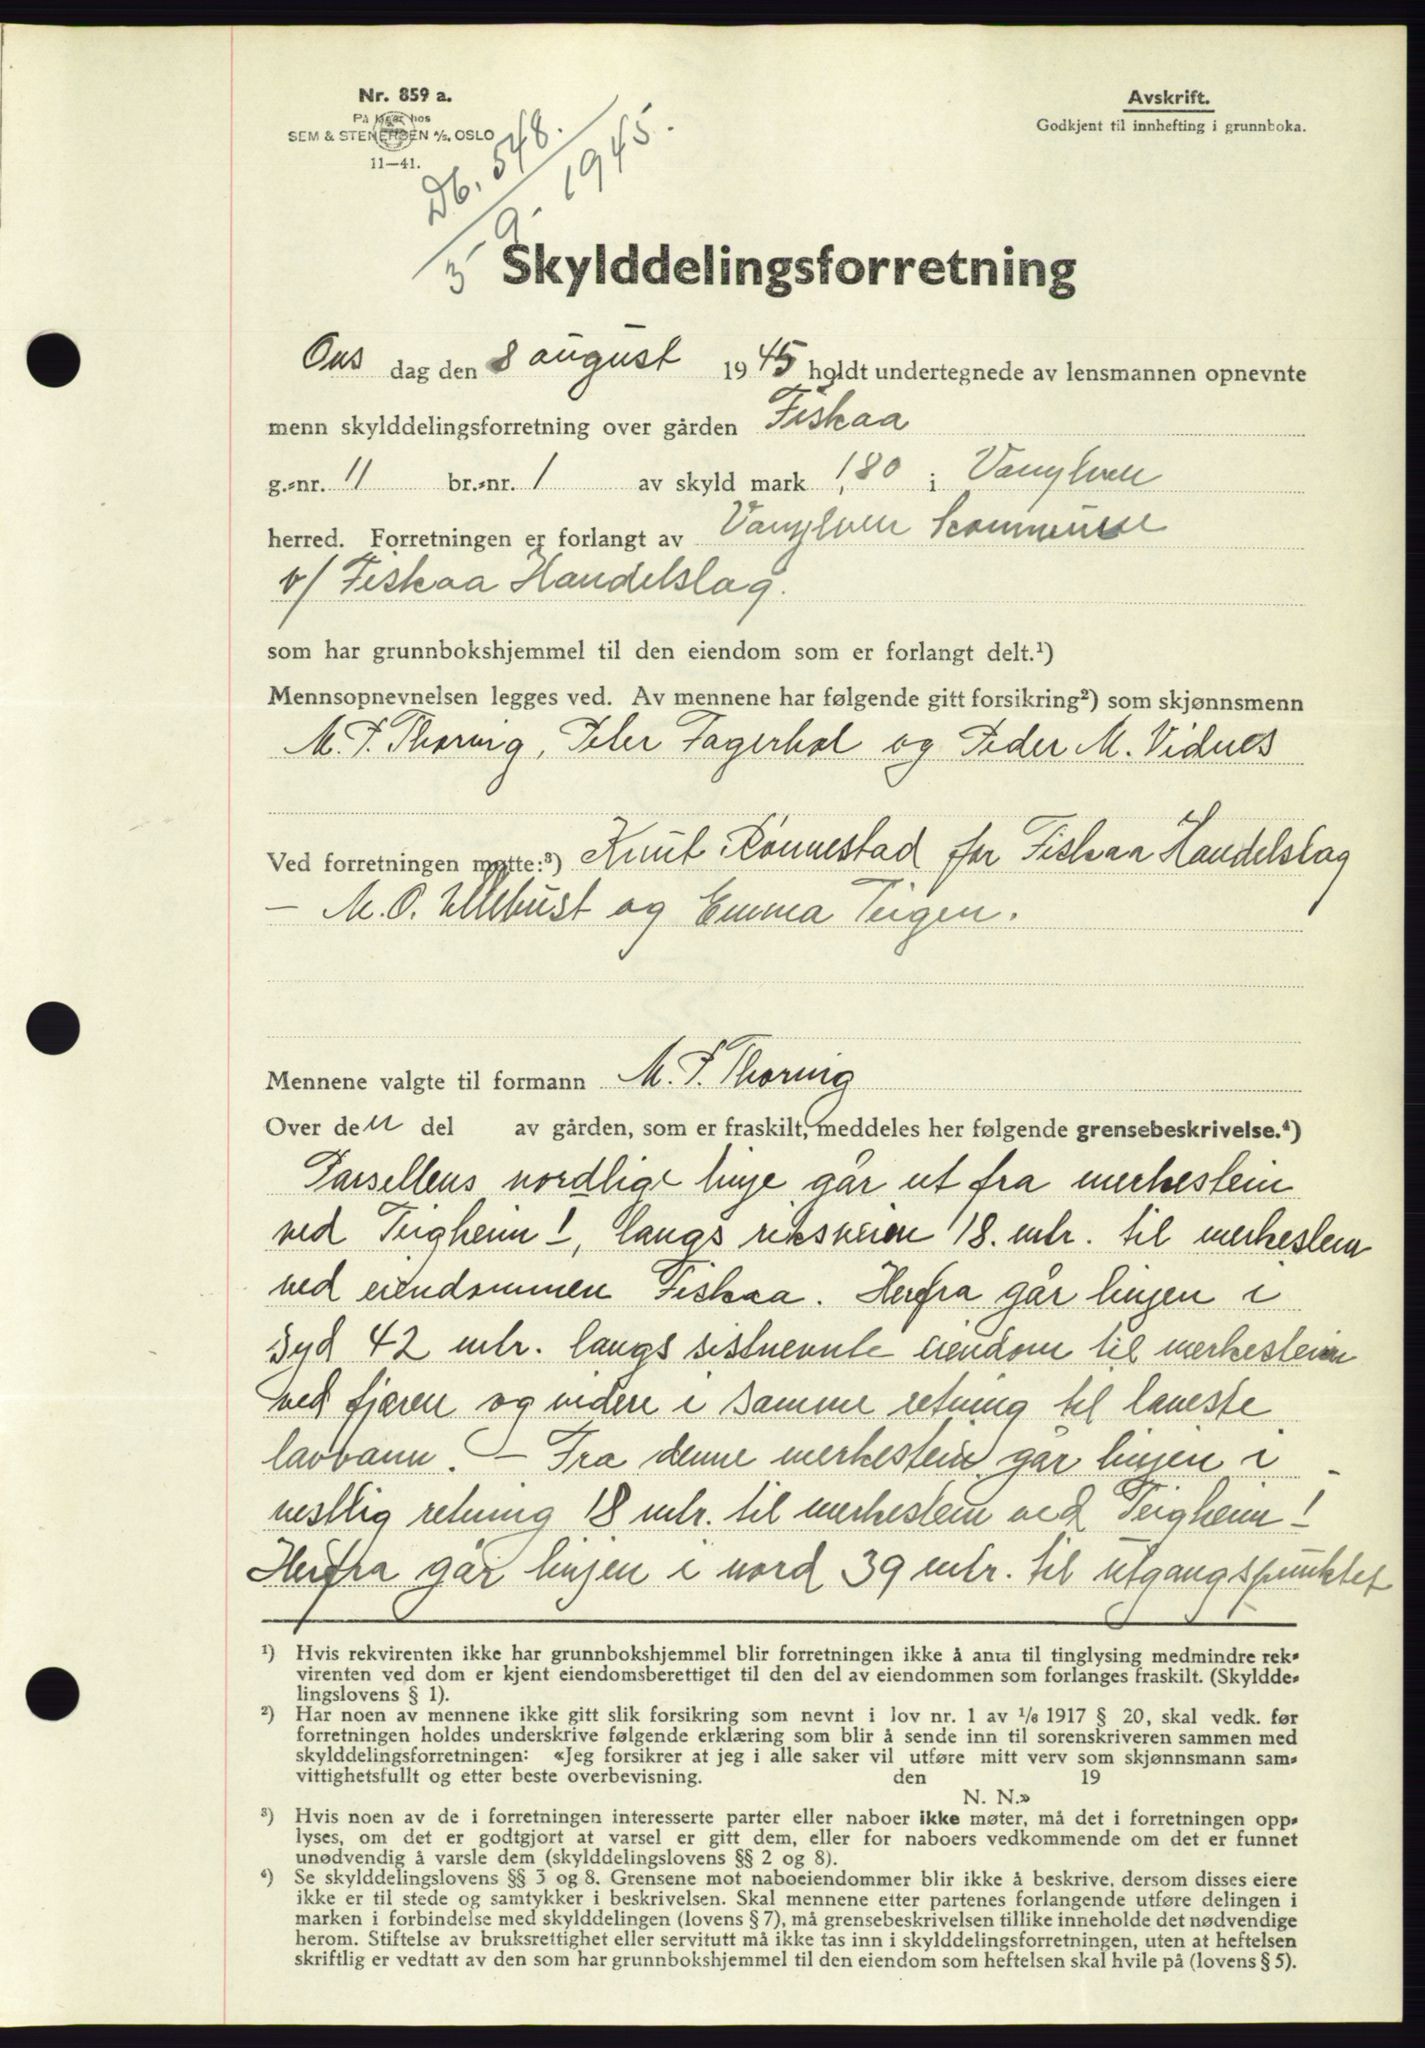 Nr. 859 a.
På lager hos
SEM & STENERSEN A/S, OSLO
11—41.
Avskrift.
Godkjent til innhefting i grunnboka.
Db. 548.
3-9-1945.
Skylddelingsforretning
Ons dag den 8 august 1945 holdt undertegnede av lensmannen opnevnte
menn skylddelingsforretning over gården Fiskaa
g.-nr. 11 br.-nr. 1 av skyld mark 1,80 i Vanylven
herred. Forretningen er forlangt av Vanylven kommune
v/ Fiskaa Handelslag.
som har grunnbokshjemmel til den eiendom som er forlangt delt.¹)
Mennsopnevnelsen legges ved. Av mennene har følgende gitt forsikring²) som skjønnsmenn
M. P. Thorvig, Peter Fagerhol og Peder M. Vidnes
Ved forretningen møtte:³) Knut Rønnestad for Fiskaa Handelslag
– M. O. Ullebust og Emma Teigen.
Mennene valgte til formann M. P. Thorvig
Over den del av gården, som er fraskilt, meddeles her følgende grensebeskrivelse.⁴)
Parsellens nordlige linje går ut fra merkestein
ved Teigheim I, langs riksveien 18. mtr. til merkestein
ved eiendommen Fiskaa. Herfra går linjen i
syd 42 mtr. langs sistnevnte eiendom til merkestein
ved fjæren og videre i samme retning til laveste
lavvann. – Fra denne merkestein går linjen i
vestlig retning 18 mtr. til merkestein ved Teigheim I
Herfra går linjen i nord 39 mtr. til utgangspunktet
¹) Hvis rekvirenten ikke har grunnbokshjemmel blir forretningen ikke å anta til tinglysing medmindre rek-
virenten ved dom er kjent eiendomsberettiget til den del av eiendommen som forlanges fraskilt. (Skyldde-
lingslovens § 1).
²) Har noen av mennene ikke gitt slik forsikring som nevnt i lov nr. 1 av ¹/₆ 1917 § 20, skal vedk. før
forretningen holdes underskrive følgende erklæring som blir å sende inn til sorenskriveren sammen med
skylddelingsforretningen: «Jeg forsikrer at jeg i alle saker vil utføre mitt verv som skjønnsmann sam-
vittighetsfullt og etter beste overbevisning. den 19
N. N.»
³) Hvis noen av de i forretningen interesserte parter eller naboer ikke møter, må det i forretningen opp-
lyses, om det er godtgjort at varsel er gitt dem, eller for naboers vedkommende om det er funnet
unødvendig å varsle dem (skylddelingslovens §§ 2 og 8).
⁴) Se skylddelingslovens §§ 3 og 8. Grensene mot naboeiendommer blir ikke å beskrive, dersom disses eiere
ikke er til stede og samtykker i beskrivelsen. Skal mennene etter partenes forlangende utføre delingen i
marken i forbindelse med skylddelingen (lovens § 7), må grensebeskrivelsen tillike inneholde det nødvendige
herom. Stiftelse av bruksrettighet eller servitutt må ikke tas inn i skylddelingsforretningen, uten at heftelsen
skriftlig er vedtatt av den som har grunnbokshjemmel til den eiendom som heftelsen skal hvile på (lovens § 5).